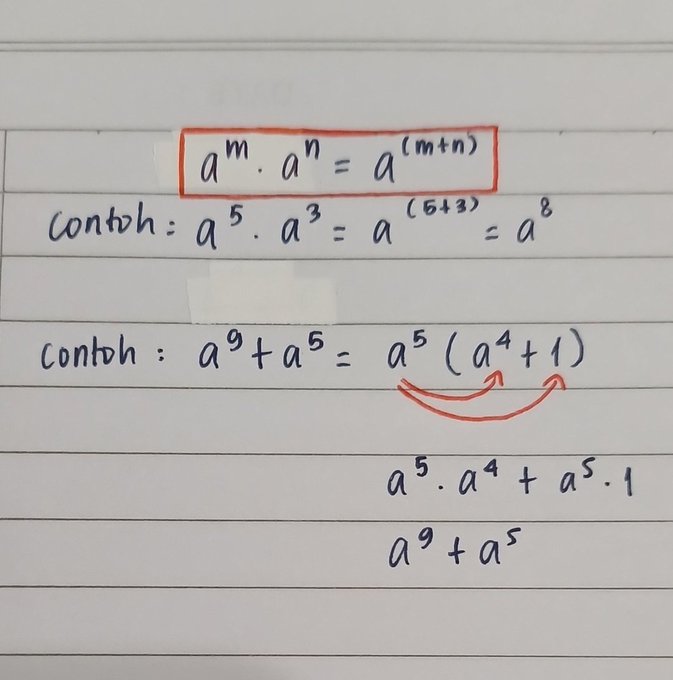 aᵐ · aⁿ = a⁽ᵐ⁺ⁿ⁾
contoh : a⁵ · a³ = a⁽⁵⁺³⁾ = a⁸
contoh : a⁹ + a⁵ = a⁵ (a⁴ + 1)
a⁵ · a⁴ + a⁵ · 1
a⁹ + a⁵